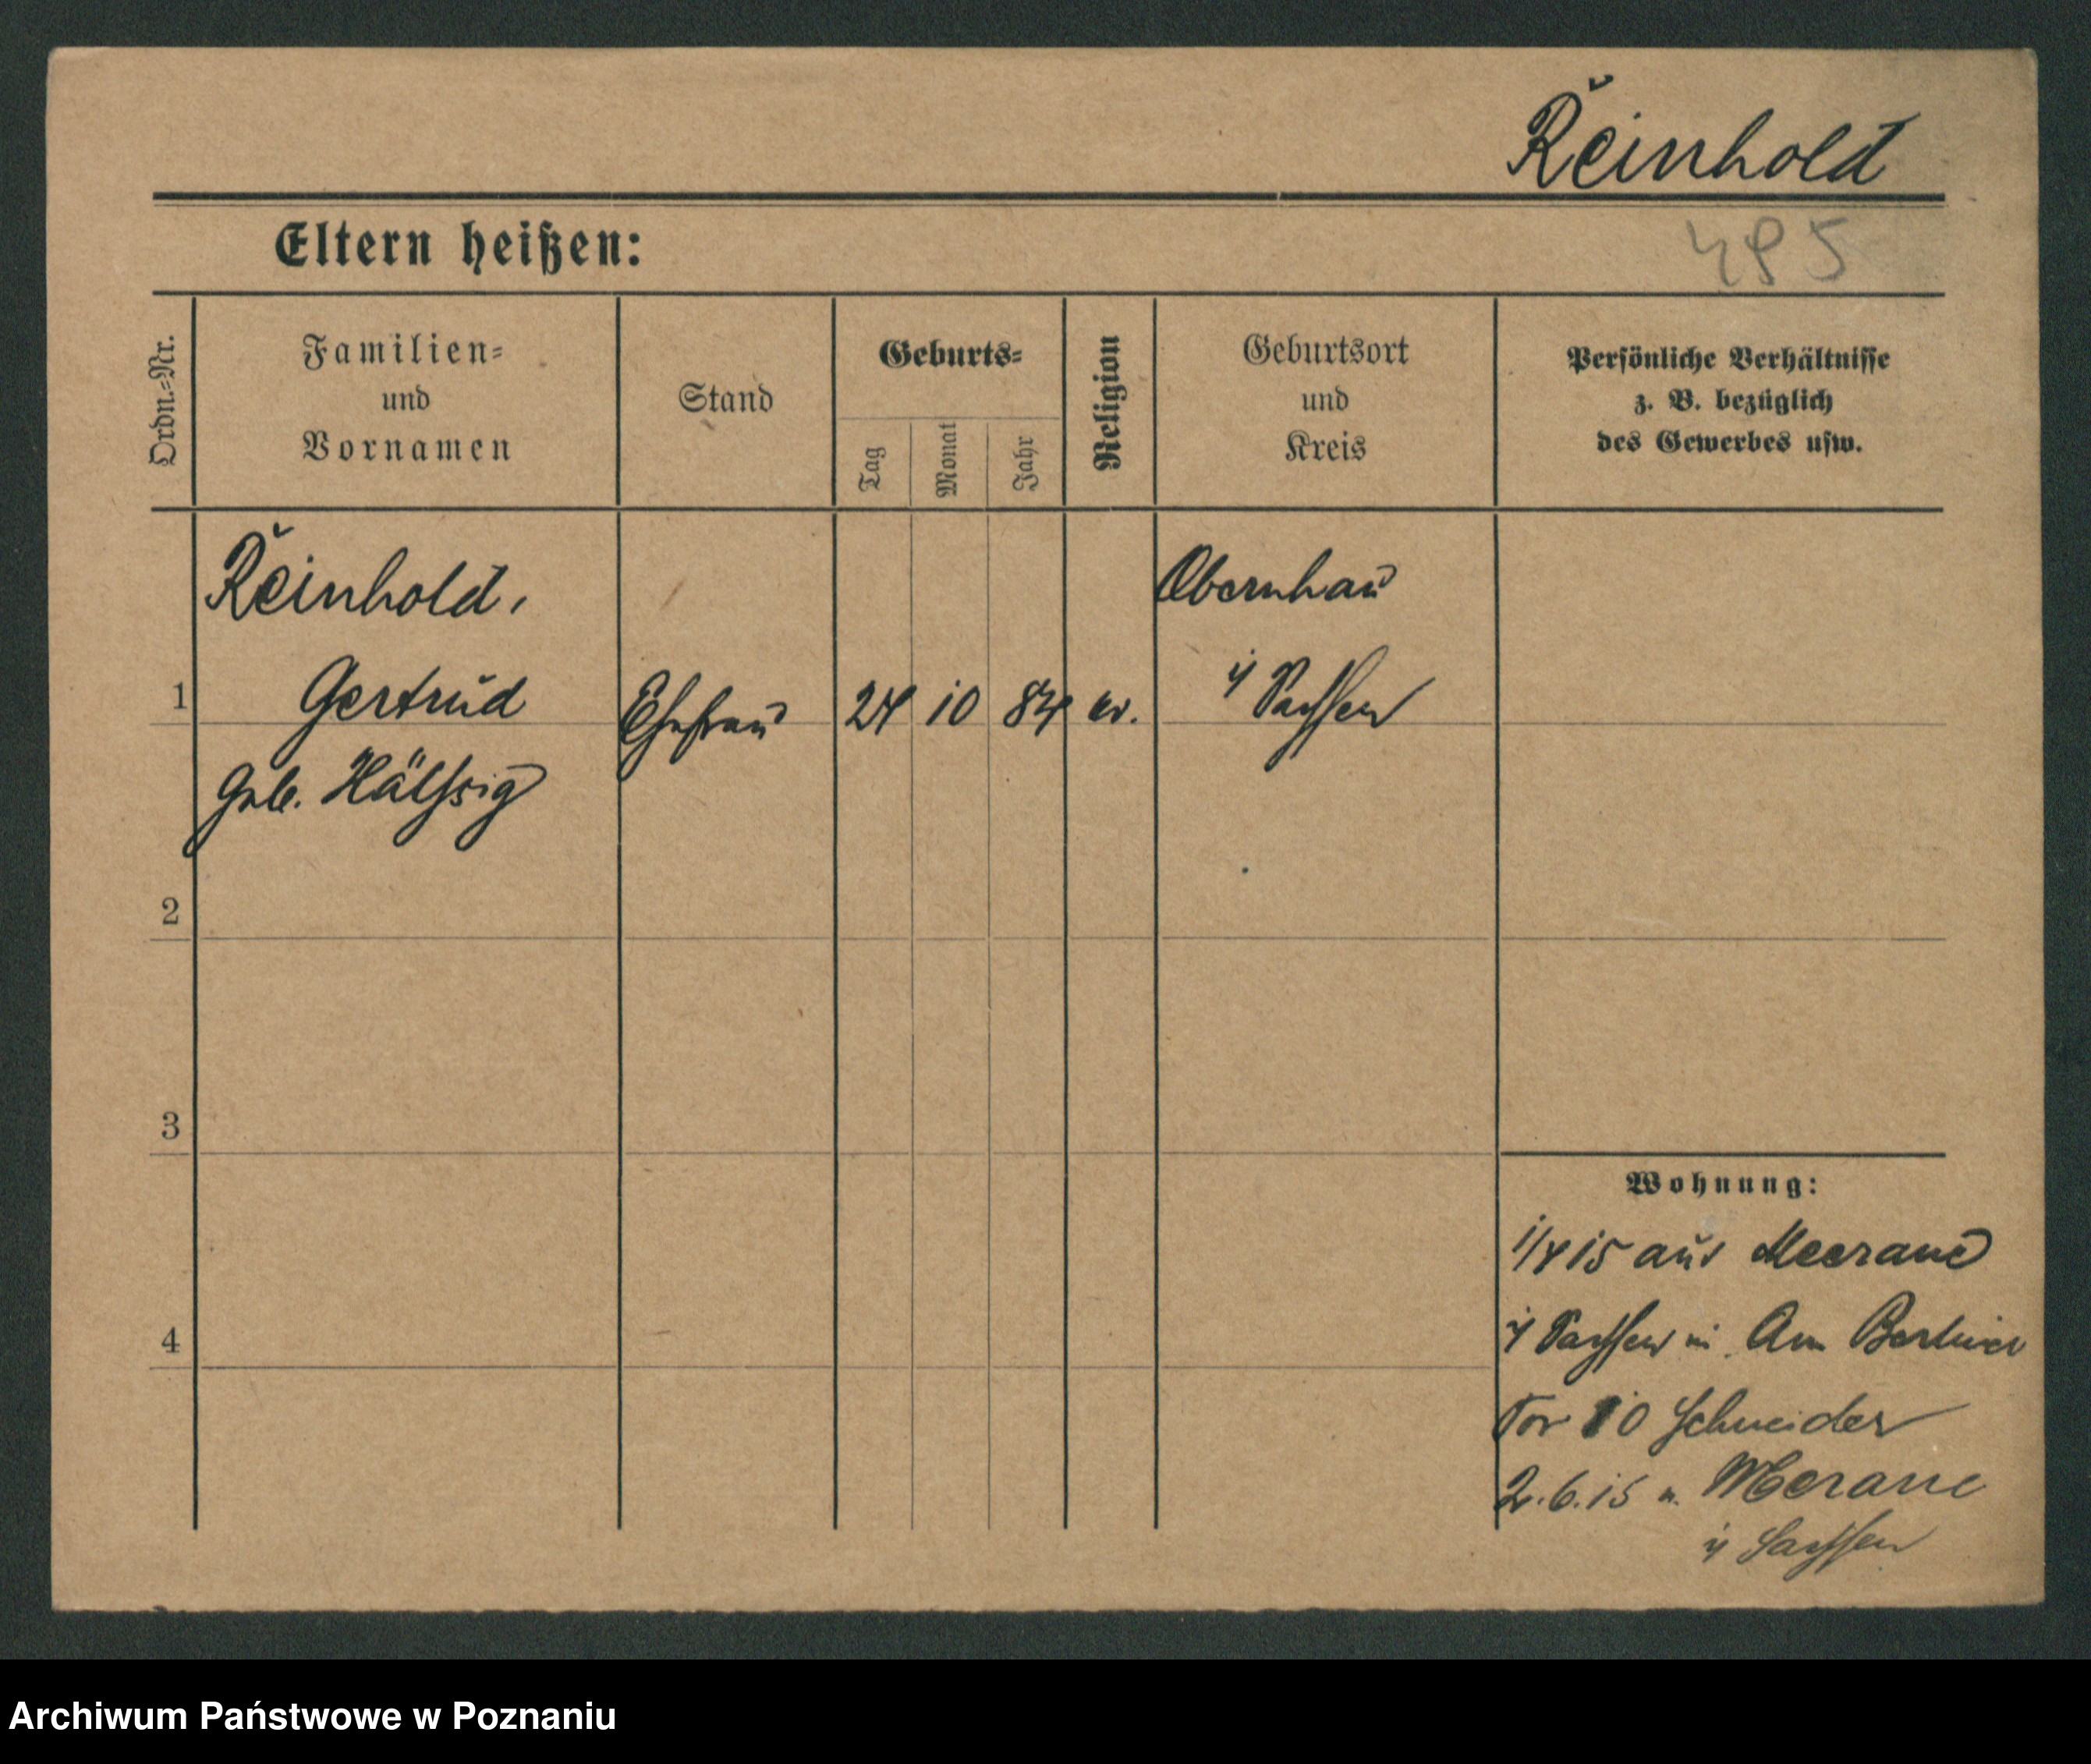 Reinhold
495
Eltern heißen:
Ordn.-Nr.
Familien-
und
Vornamen
Stand
Geburts-
Tag
Monat
Jahr
Religion
Geburtsort
und
Kreis
Persönliche Verhältnisse
z. B. bezüglich
des Gewerbes usw.
Reinhold,
Obernhau
1 Gertrud Ehefrau 24 10 84 ev. i/ Sachsen
geb. Hälssig
2
3
4
Wohnung:
1/4 15 aus Meerane
i/ Sachsen in Am Berliner
Tor 10 Schneider
2.6.15 n. Merane
i/ Sachsen
Archiwum Państwowe w Poznaniu